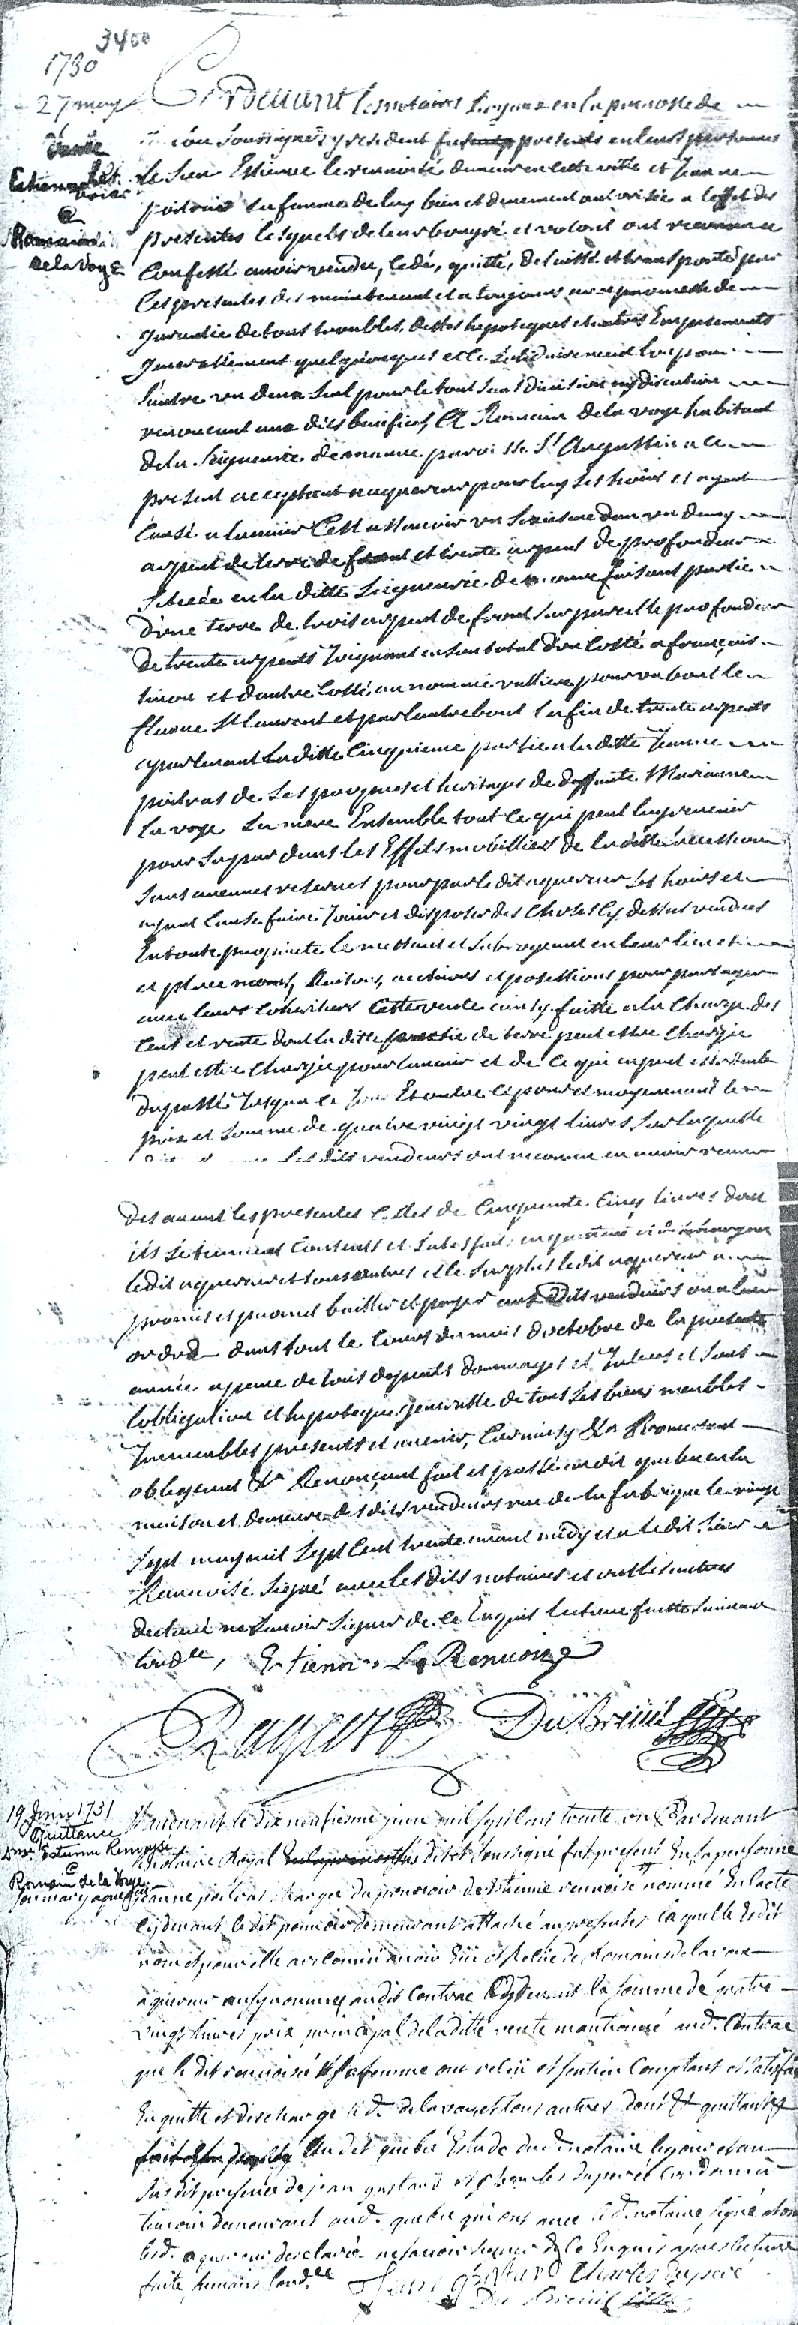 3400
1730
27 may
Vente
Estienne
@
Romain
de la Voye
Pardevant les notaires Royaux en la prevosté de
soussignez y resident furent presents en leurs personnes
le Sieur Estienne le renvoizé demeurant en cette ville et Jeanne
poitras sa femme de luy bien et deuement authorisée a l'effet des
presentes lesquels de leur bon gré et volonté ont reconnu et
Confessé avoir vendu, cedé, quitté, delaissé et transporté par
Ces presentes des maintenant et a toujours avec promesse de
garantie de tous troubles, dettes hipoteques et autres Empeschements
generallement quelqonques et le solidairement l'un pour
l'autre un deux seul pour le tout sans division ny discution
renoncant aux dits benefices, A Romain de la voye habitant
de la Seigneurie de maure paroisse St Augustin a ce
present et acceptant acquereur pour luy ses hoirs et ayant
Cause a lavenir Cest assavoir un d'un demy
arpent de terre de front et trente arpents de profondeur
Scituée en la ditte Seigneurie de maure faisant partie
d'une terre de trois arpent de front sur pareille profondeur
de trente arpents Joignant en son total d'un Costé a françois
tinon et d'autre Costé au nommé valliere pour un bout le
fleuve St Laurent et par l'autre bout la fin de trente arpents
apartenant laditte Cinquieme partie a laditte Jeanne
poitras de ses propres et heritages de deffunte Marianne
la voye sa mere Ensemble tout ce qui peut luy revenir
pour sa part dans les Effets mobilliers de laditte succession
sans aucunes reserves pour par le dit acquereur ses hoirs et
ayant Cause faire Jouir et disposer des Choses Cy dessus vendues
En toute proprieté le mettant et subrogeant en leur lieu et
et place noms, Raisons, actions et possessions pour partager
avec leurs Coheritiers Cette vente ainsy faitte a la Charge des
Cens et rente dont la ditte partie de terre peut estre Chargée
peut estre Chargée pour lavenir et de ce qui en peut estre
du passé Jusqua ce Jour Et outre ce pour et moyennant le
prix et somme de quatre vingt vingt livres sur laquelle
lesdits vendeurs ont reconnu en avoir receu
des avant les presentes Celles de Cinquante Cinq livres dont
ils se tiennent Contents et satisfait en quittent et dechargent
ledit acquereur et tous autres et le surplus ledit acquereur a
promis et promet bailler et payer aux dits vendeurs ou a leur
ordre dans tout le Cours du mois d'octobre de la presente
année a peine de tous depents dommages et Interest et sous
l'obligation et hipoteque generalle de tous ses biens meubles
Immeubles presents et avenir, Car ainsy &a Promettant
obligeant &a Renonçant fait et passé au dit quebec en la
maison et demeure desdits vendeurs rue de la fabrique le vingt
sept may mil sept Cent trente avant midy et a le dit Sieur
Renvoisé Signé avec les dits notaires et ont les autres
declaré ne Scavoir Signer de ce Enquis lecture faitte suivant
lord.ce, Estienne Le Renvoizé
DuBreüil
19 Juin 1731
Quittance
Estienne Renvoyzé
@
Romain de la Voye
Et avenant le dix neufiesme juin mil sept Cens trente un Pardevant
le Notaire Royal soussigné fut present En sa personne
Jeanne poitras Chargée du pouvoir de Estienne renvoisé nommé En lacte
Cydevant le dit pouvoir demeurant attaché au presentes laquelle audit
nom et pour elle a reConnu avoir Eüe et Receüe de Romain de la voye
aquereur aussy nommé audit Contrac Cydevant la somme de quatre
vingt livres prix principal de laditte vente mantionné aud. Contrac
que le dit renvoisé et sa femme ont receü et sen tien Comptant et satisfait
En quitte et descharge led. delavoye et tous autres dont &a quittances
fait audit quebec Estude dud. notaire les jour et an
Susdit presence de jean gastard et Charles Duperé Cordonnier
temoin demeurant aud. quebec qui ont avec led. notaire signé et on
led. aquereur desclaré ne scavoir signer de Ce Enquis apres lecture
faite suivant lord.ce Jean gastard Charles Duperé
Du Breüil